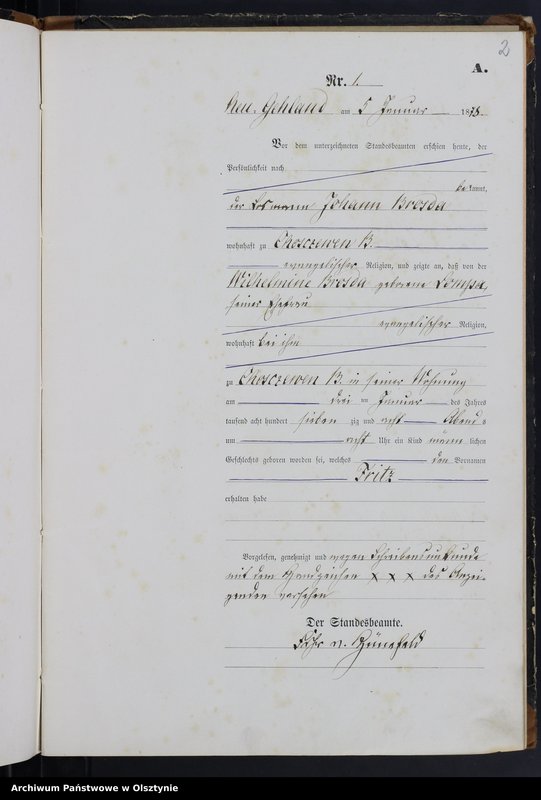 2
A.
Nr. 1.
Neu-Gehland am 5 Januar 1878.
Vor dem unterzeichneten Standesbeamten erschien heute, der
Persönlichkeit nach
bekannt,
der Johann Brosda
wohnhaft zu Choszewen B.
evangelischer Religion, und zeigte an, daß von der
Wilhelmine Brosda geborene Lompa,
seiner Ehefrau
evangelischer Religion,
wohnhaft bei ihm
zu Choszewen B. in seiner Wohnung
am drei ten Januar des Jahres
tausend acht hundert sieben zig und acht Abends
um acht Uhr ein Kind männlichen
Geschlechts geboren worden sei, welches den Vornamen
Fritz
erhalten habe
Vorgelesen, genehmigt und wegen Schreibensunkunde
mit dem Handzeichen x x x des Anzei-
genden versehen
Der Standesbeamte.
v. Hünefeld
Archiwum Państwowe w Olsztynie